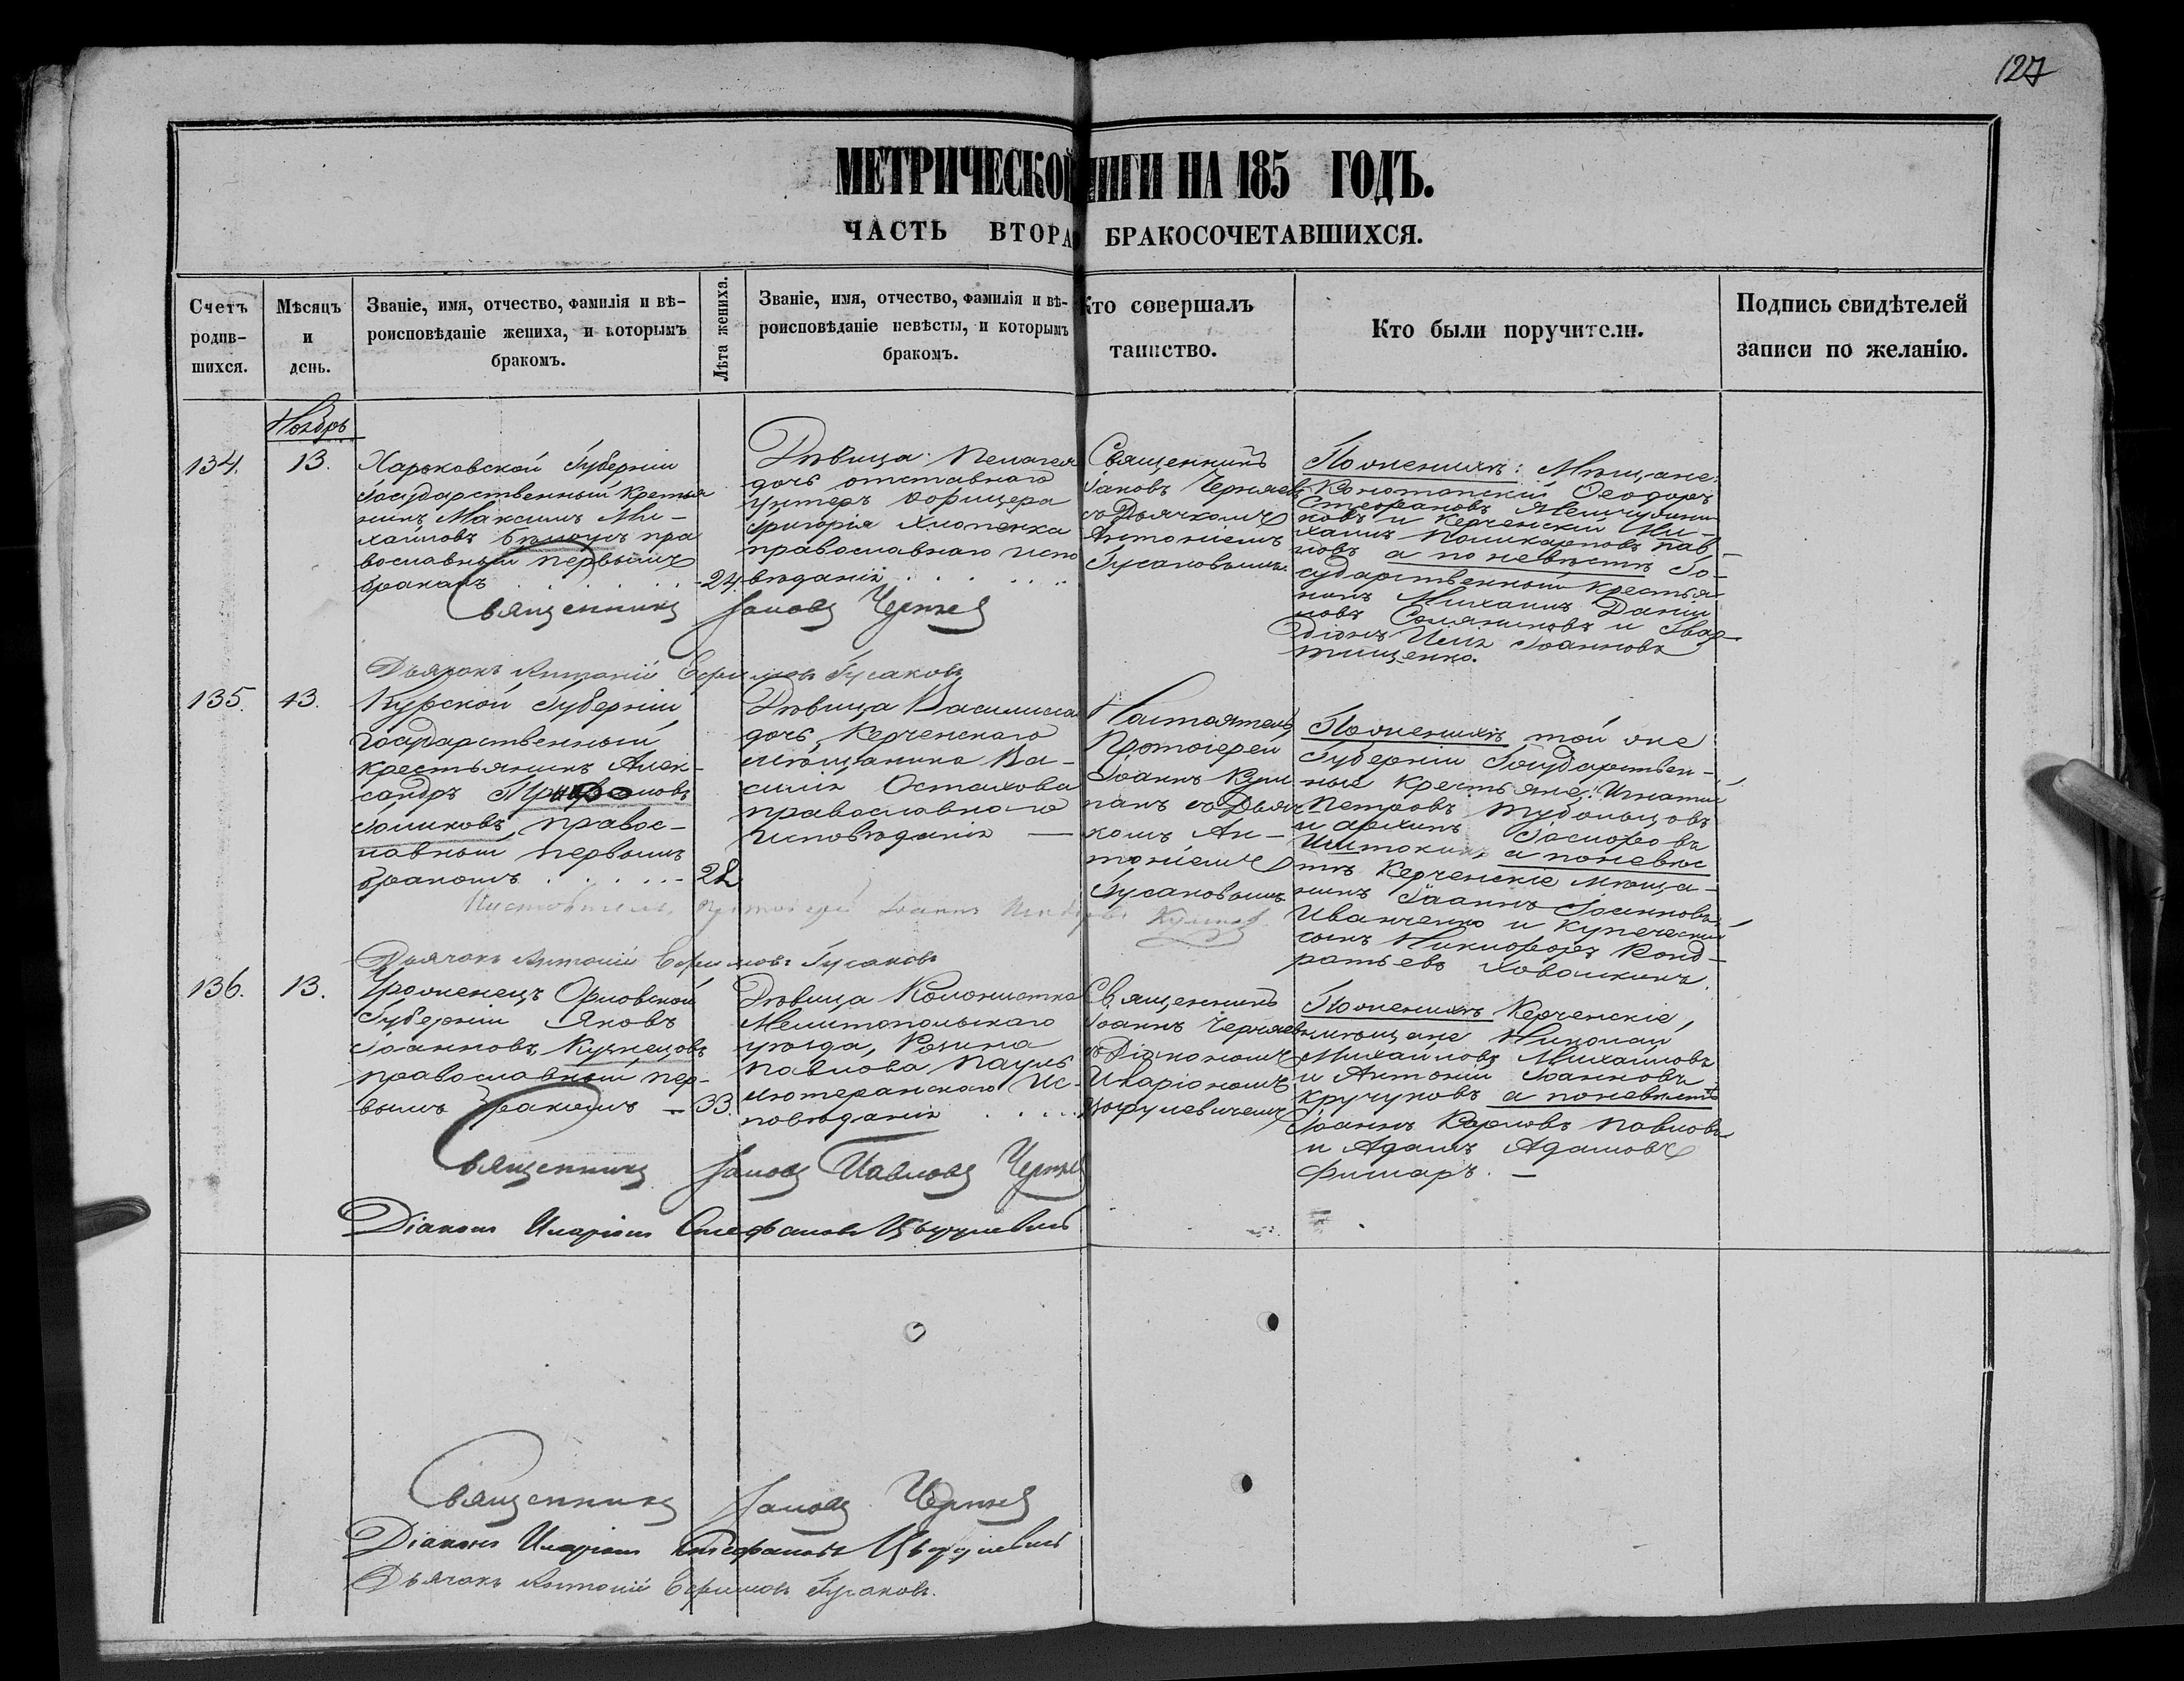 127
МЕТРИЧЕСКОЙ НИГИ НА 185 ГОДЪ.
ЧАСТЬ ВТОРА БРАКОСОЧЕТАВШИХСЯ.
Счетъ
родив-
шихся.
Мѣсяцъ
и
день.
Званіе, имя, отчество, фамилія и вѣ-
роисповѣданіе жениха, и которымъ
бракомъ.
Лѣта жениха.
Званіе, имя, отчество, фамилія и вѣ-
роисповѣданіе невѣсты, и которымъ
бракомъ.
Кто совершалъ
таинство.
Кто были поручители.
Подпись свидѣтелей
записи по желанію.
Ноябрь
134.
13.
Харьковской Губерніи
Государственный Крестья
нинъ Максимъ Ми-
хаиловъ пра
вославный первымъ
бракомъ
24.
Дѣвица Пелагея
дочь отставнаго
Унтеръ Офицера
Григорія Хлопенка
православнаго испо
вѣданія
Священникъ
Іаковъ Черняевъ
съ Дьячкомъ
Антоніемъ
Гусаковымъ
По женихѣ: Мѣщане:
Конотопскій Ѳеодоръ
Стефановъ
ковъ и Керченскій Ми-
хаилъ Поликарповъ Пав-
ловъ а по невѣстѣ Го-
сударственный крестья-
нинъ Михаилъ Дании
ловъ и Гвар-
діонъ Іоанновъ
тищенко.
Священникъ Іаковъ Черняев
Дьячокъ Антоній Ефимовъ Гусаковъ
135.
13.
Курской Губерніи
Государственный
крестьянинъ Алек-
сандръ
Голиковъ, правос-
лавный первымъ
бракомъ
Дѣвица Василисса
дочь Керченскаго
мѣщанина Ва-
силія Остахова
православнаго
исповѣданія —
Настоятель
Протоіерей
Іоаннъ Кум
панъ съ Дьяч
комъ Ан-
тоніемъ
Гусаковымъ
По женихѣ той же
Губерніи Государствен-
ные Крестьяне: Игнатій
Петровъ
и Архипъ
а по невѣс
тѣ Керченскіе мѣща-
нинъ Іоаннъ Іоанновъ
Иванченко и Купеческій
сынъ Никифоръ Конд-
ратьевъ Ховалкинъ.
Настоятель Протоіерей Іоаннъ
Дьячокъ Антоній Ефимовъ Гусаковъ
136.
13.
Уроженецъ Орловской
Губерніи Яковъ
Іоанновъ Кузнецовъ
православный пер-
вымъ бракомъ —
33.
Дѣвица Колонистка
Мелитопольскаго
уѣзда, Розина
Павлова Пауль
лютеранскаго Ис-
повѣданія
Священникъ
Іоаннъ Черняевъ
съ Діакономъ
Иларіономъ
По женихѣ Керченскіе,
мѣщане Николай
Михайловъ Михайловъ
и Антоній Іоанновъ
Кручуковъ а по невѣстѣ
Іоаннъ Карловъ Павловъ
и Адамъ Адамовъ
Фишаръ. —
Священникъ Іаковъ Павловъ Черняев
Діаконъ Иларіонъ Стефановъ
Священникъ Іаковъ Черняев
Діаконъ Иларіонъ Стефановъ
Дьячокъ Антоній Ефимовъ Гусаковъ.